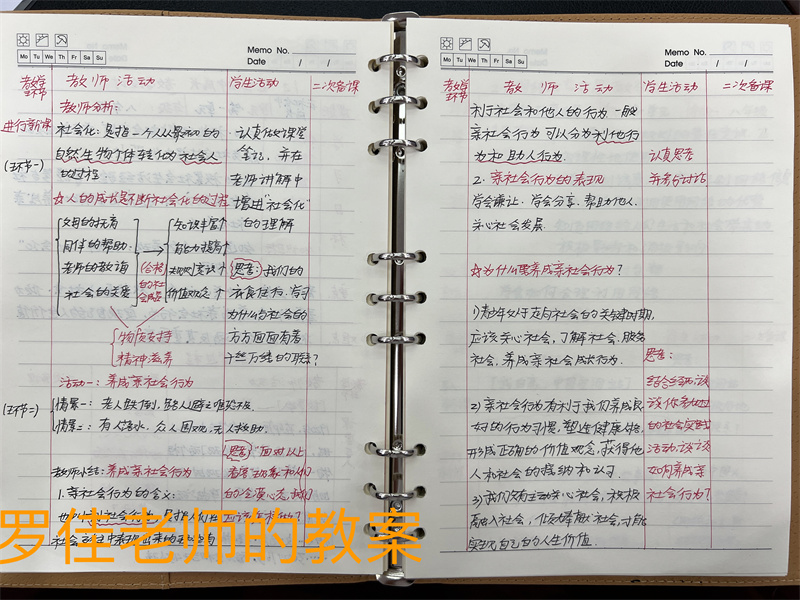 Memo No.
Date / /
Mo Tu We Th Fr Sa Su
教学环节 教师活动 学生活动 二次备课
教师分析:
进行新课
社会化:是指一个人从最初的
自然生物个体转化为社会人
的过程
(环节一)
认真做好课堂
笔记,并在
老师讲解中
增进"社会化"
的理解
☆人的成长是不断社会化的过程
父母的抚育
同伴的帮助
老师的教诲
社会的关爱
合格的社会成员
知识丰富↑
能力提高↑
规则意识↑
价值观念↑
思考:我们的
衣食住行、学习
为什么与社会的
方方面面有着
千丝万缕的联系?
物质支持
精神滋养
活动一:养成亲社会行为
(环节二)
情景一:老人跌倒,路人避之唯恐不及
情景二:有人落水,众人围观,无人救助
思考:面对以上
教师小结:养成亲社会行为
1.亲社会行为的含义:
罗佳老师的教案
Memo No.
Date / /
Mo Tu We Th Fr Sa Su
教学环节 教师活动 学生活动 二次备课
利于社会和他人的行为 一般
亲社会行为可以分为利他行
为和助人行为.
2.亲社会行为的表现
学会谦让、学会分享、帮助他人、
关心社会发展
认真思考
并参与讨论
☆为什么要养成亲社会行为?
1)青少年处于走向社会的关键时期,
应该关心社会,了解社会,服务
社会,养成亲社会成长行为.
2)亲社会行为有利于我们养成良
好的行为习惯,塑造健康人格,
形成正确的价值观念,获得他
人和社会的接纳和认可.
3)我们只有主动关心社会,积极
融入社会,倾力奉献社会,才能
实现自己的人生价值.
思考:
结合经历,谈
谈你参加过
的社会实践
活动,谈谈
如何养成亲
社会行为?